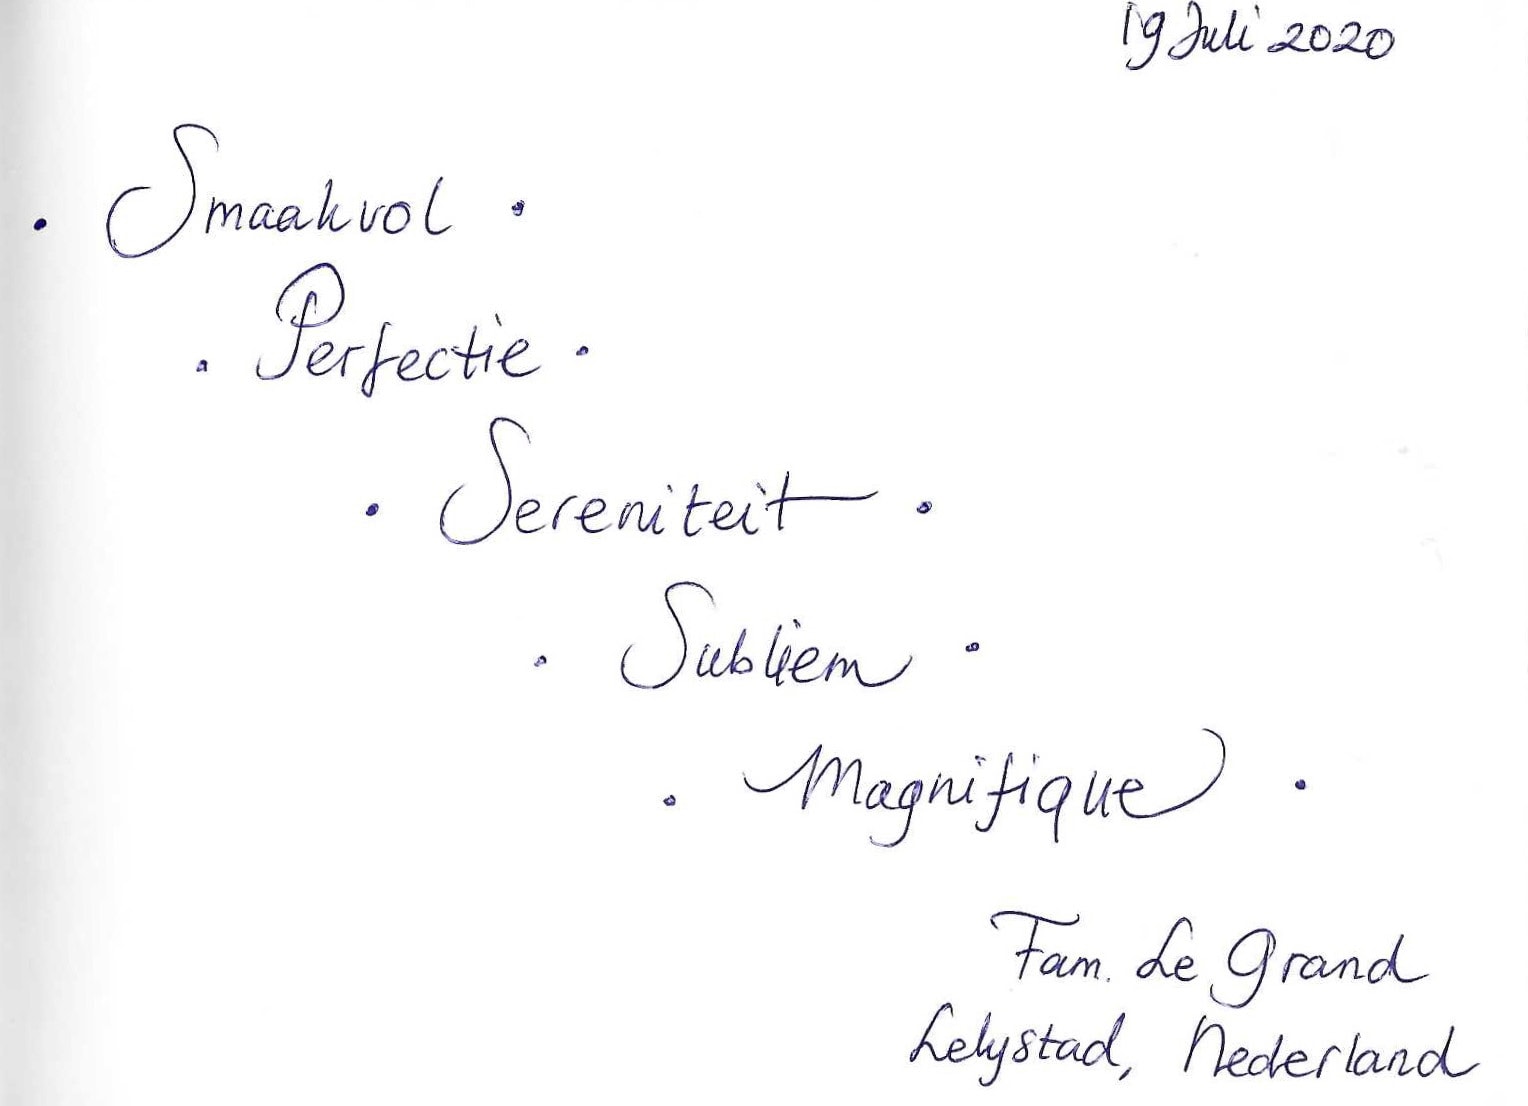 19 Juli 2020
• Smaakvol •
• Perfectie •
• Sereniteit •
• Subliem •
• Magnifique •
Fam. Le Grand
Lelystad, Nederland